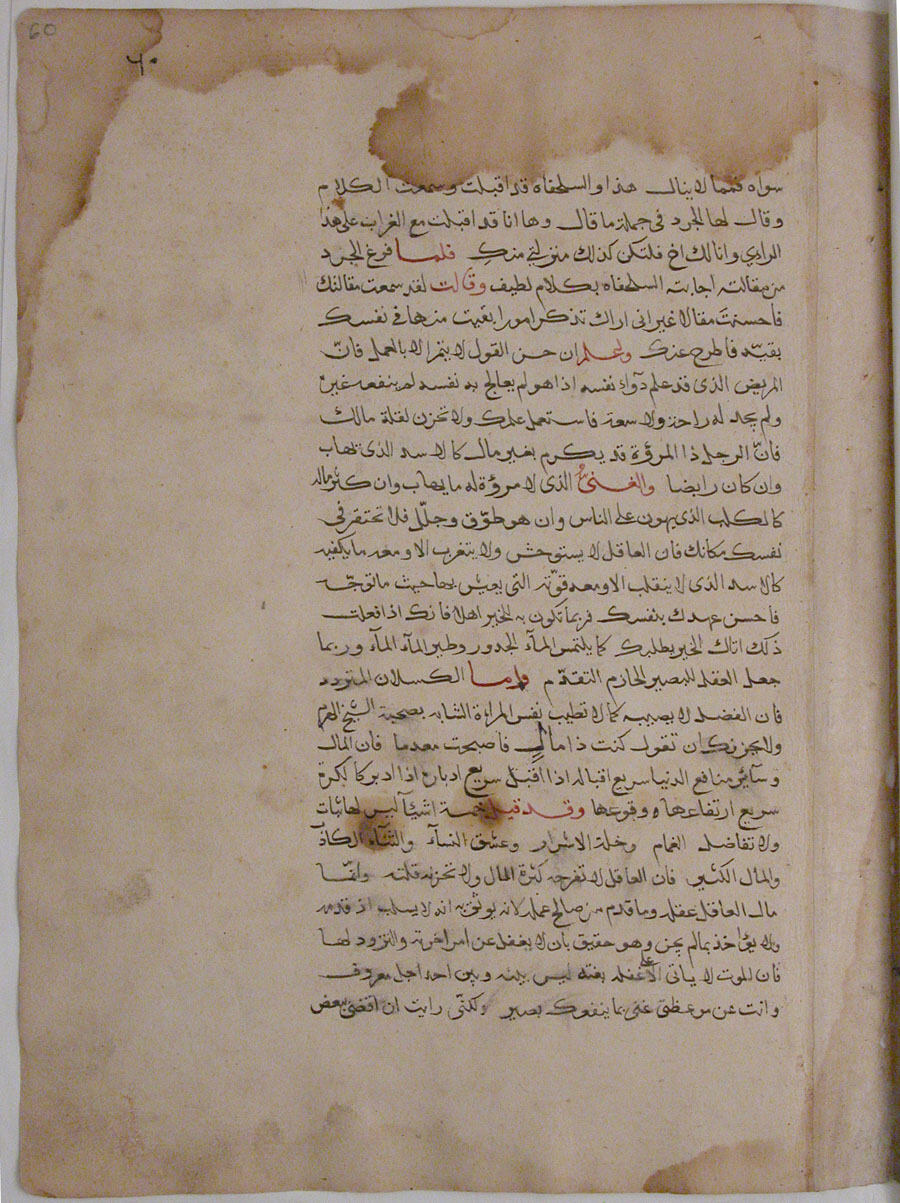 60
٦٠
سواه فمما لا ينال هذا والسلحفاه قد اقبلت وسمعت الكلام
وقال لها الجرد في جملة ما قال وها انا قد اقبلت مع الغراب على هذا
الراي وانا لك اخ فلتكن كذلك منزلتي منك فلما فرغ الجرد
من مقالته اجابته السلحفاه بكلام لطيف وقالت لقد سمعت مقالتك
فاحسنت مقالا غير اني اراك تذكر امورا بقيت منها في نفسك
بقيّه فاطرح عنك واعلم ان حسن القول لا يتم الا بالعمل فانّ
المريض الذي قد علم دوآء نفسه اذا هو لم يعالج به نفسه لم ينفعه غيره
ولم يجد له راحة ولا سعة فاستعمل علمك ولا تحزن لقلة مالك
فانّ الرجل ذا المروّة قد يكرم بغير مال كالاسد الذي تهاب
وان كان رابضا والغنيّ الذي لا مروّة له ما يهاب وان كثر ماله
كالكلب الذي يهون على الناس وان هو طوّق وجلّل فلا تحتقر في
نفسك مكانك فان العاقل لا يستوحش ولا يتغرب الا ومعه ما يكفيه
كالاسد الذي لا ينقلب الا ومعه قوّته التي يعيش بها حيث ما توجّه
فاحسن عهدك بنفسك فربما تكون به للخير اهلا فانك اذا فعلت
ذلك اتاك الخير يطلبك كما يلتمس المآء الحدور وطير المآء المآء وربما
جعل العقل للبصير الحازم التقدّم واما الكسلان المتردد
فان الفضل لا يصيبه كما لا تطيب نفس المراة الشابه بصحبة الشيخ الهرم
ولا يحزنك ان تقول كنت ذا مال فاصبحت معدما فان المال
وسآئر منافع الدنيا سريع اقباله اذا اقبل سريع ادباره اذا ادبر كالكرة
سريع ارتفاعها ووقوعها وقد قيل خمسة اشيآ ليس لها ثبات
ولا تفاضل الغمام وخلة الاشرار وعشق النسآء والثنآء الكاذب
والمال الكثير فان العاقل لا تفرحه كثرة المال ولا تحزنه قلته وانما
مال العاقل عقله وما قدم من صالح عمله لانه يوثق به انه لا يسلب اذ قدمه
ولا يؤاخذ بما لم يجن وهو حقيق بان لا يغفل عن امر اخرته والتزود لها
فان الموت لا ياتي الا على غفله بغته ليس بينه وبين احد اجل معروف
وانت عن موعظتي غني بما ينفعك بصير ولكنّي رايت ان اقضي بعض